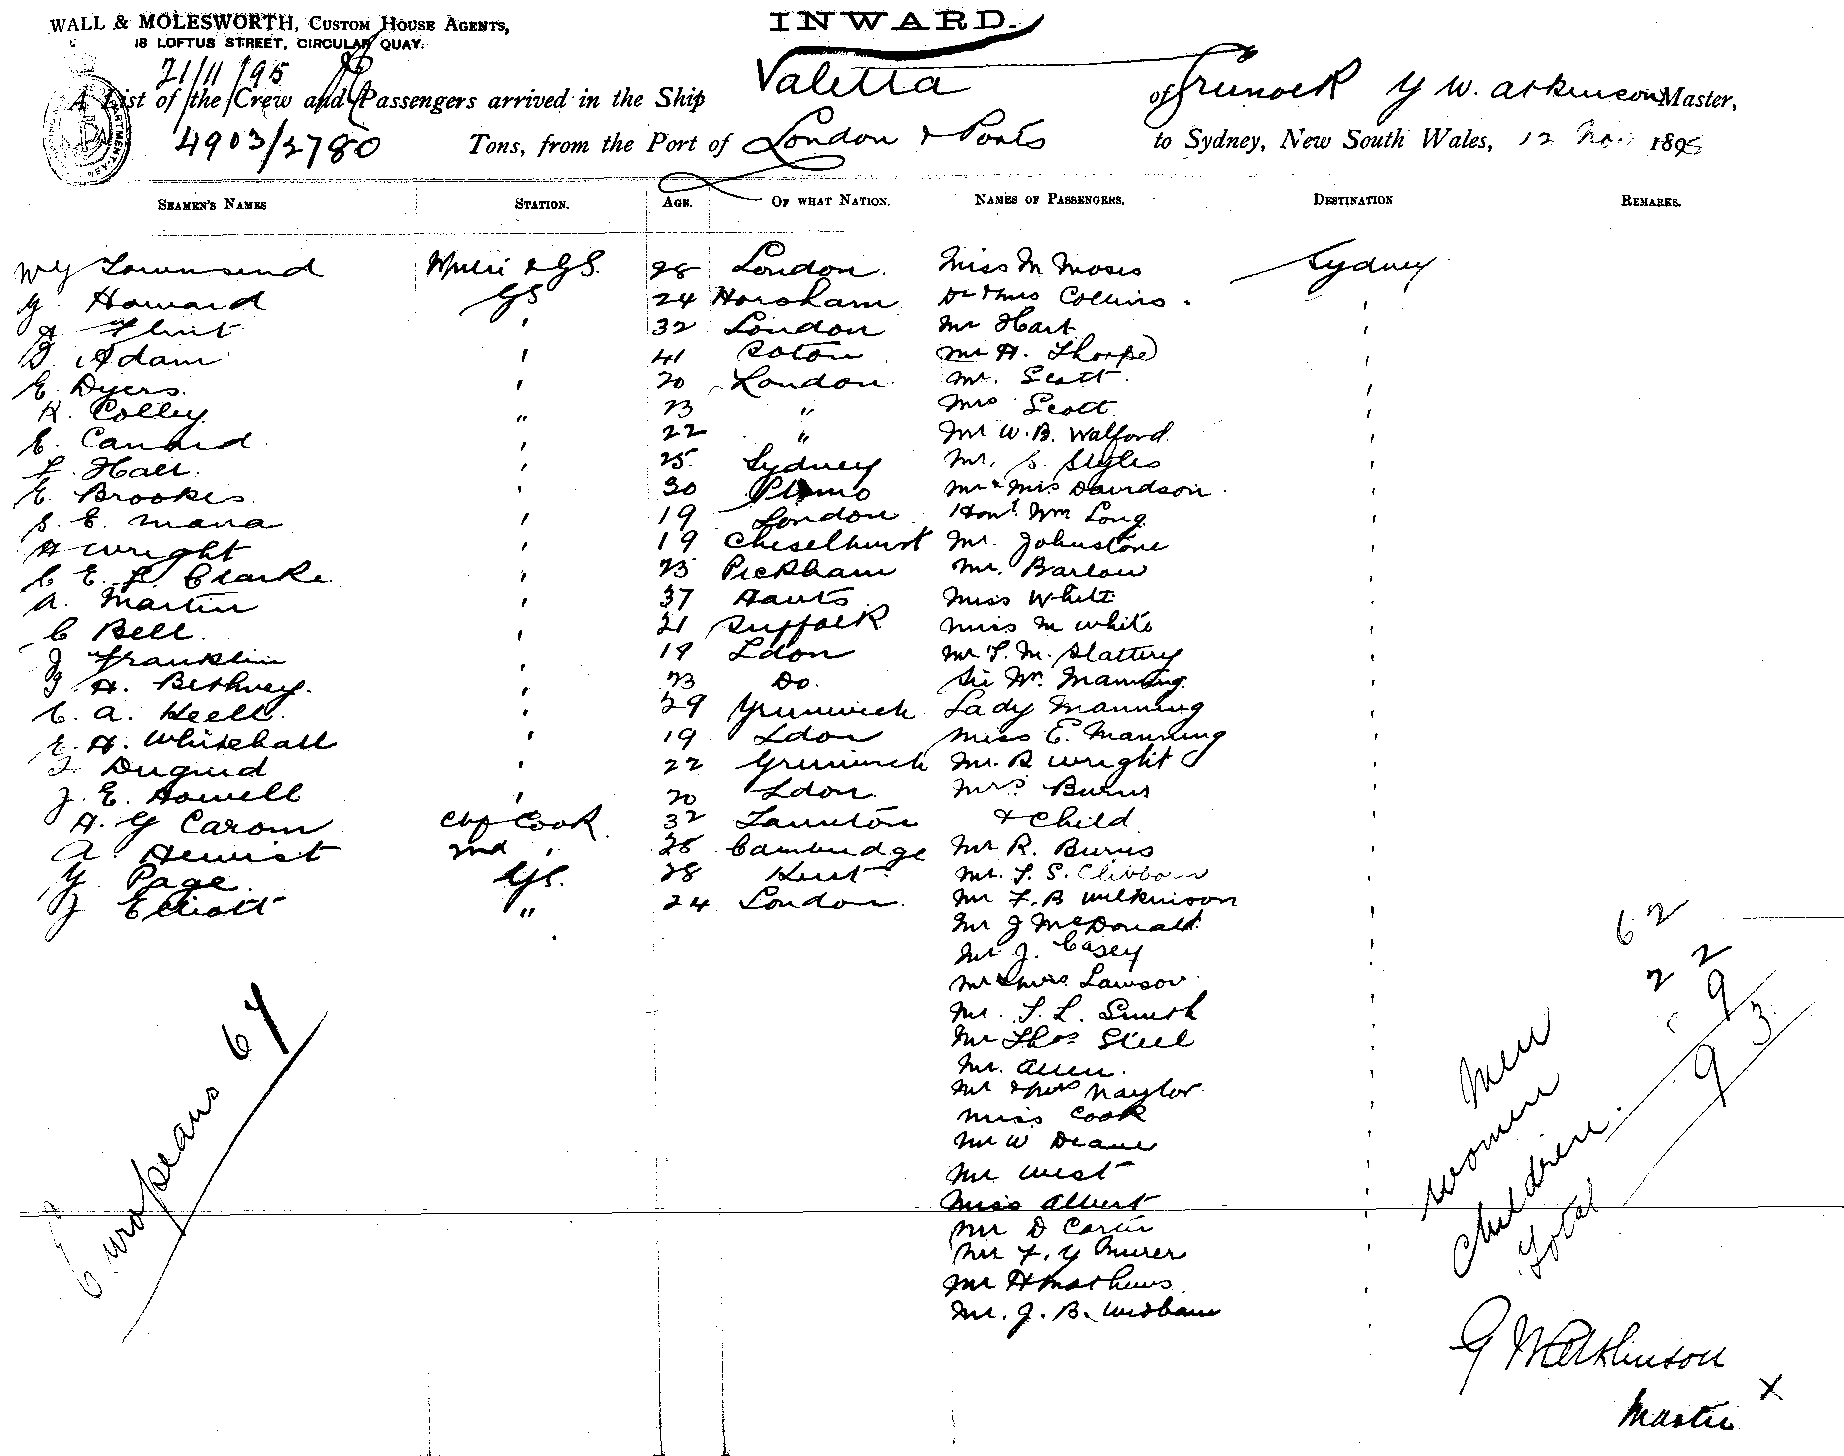 WALL & MOLESWORTH, CUSTOM HOUSE AGENTS,
18 LOFTUS STREET, CIRCULAR QUAY.
INWARD.
21/11/95
A List of the Crew and Passengers arrived in the Ship Valetta of Greenock G W. Atkinson Master,
4903/2780 Tons, from the Port of London & Ports to Sydney, New South Wales, 12 Nov 1895
SEAMEN'S NAMES STATION. AGE. OF WHAT NATION. NAMES OF PASSENGERS. DESTINATION REMARKS.
W G Townsend & GS. 28 London. Miss M Moses Sydney
G. Howard GS 24 Horsham Dr & Mrs Collins. '
A Flint ' 32 London Mr Hart '
B. Adam ' 41 Soton Mr A. Thorpe '
E. Dyers. ' 20 London Mr. Scott. '
R. Colley " 23 " Mrs Scott '
E. Cannard ' 22 " Mr W. B. Walford. '
F. Hall. ' 25 Sydney Mr. S. Styles '
E. Brookes ' 30 Mr & Mrs Davidson. '
S. E. Mana ' 19 London Honl. Wm Long '
A Wright ' 19 Cheselhurst Mr. Johnstone '
C E. F. Clarke ' 23 Peckham Mr. Barlow '
A. Martin ' 37 Hants Miss White '
C Bell. ' 21 Suffolk Miss M White '
J Franklin ' 19 Ldon Mr T. M. Slattery '
A. Bethney. ' 23 Do. Sir Wm. Manning '
E. A. Keell. ' 29 Greenwich Lady Manning '
E. A. Whitehall ' 19 Ldon Miss E. Manning '
Duguid ' 22 Greenwich Mr. R Wright '
J. E. Howell ' 20 Ldon. Mrs Burns '
A. G Carom Chf Cook. 32 Taunton & Child '
A. Hewist 2nd ' 26 Cambridge Mr R. Burns '
G. Page. GS. 28 Kent Mr. T. S. Clibborn '
J Elliott " 24 London Mr F. B Wilkinson '
Mr J McDonald '
Mr J. Casey '
Mr & Mrs Lawson '
Mr. T. L. Smith '
Mr Thos Steel '
Mr. Allen. '
Mr & Mrs Naylor '
Miss Cook '
Mr W Deane '
Mr West '
Miss Albert '
Mr D Carter '
Mr F. G Murer '
Mr H Mathews '
Mr. J. B. '
Europeans 64
Men 62
Women 22
Children. 9
Total 93
G W Atkinson
Master X